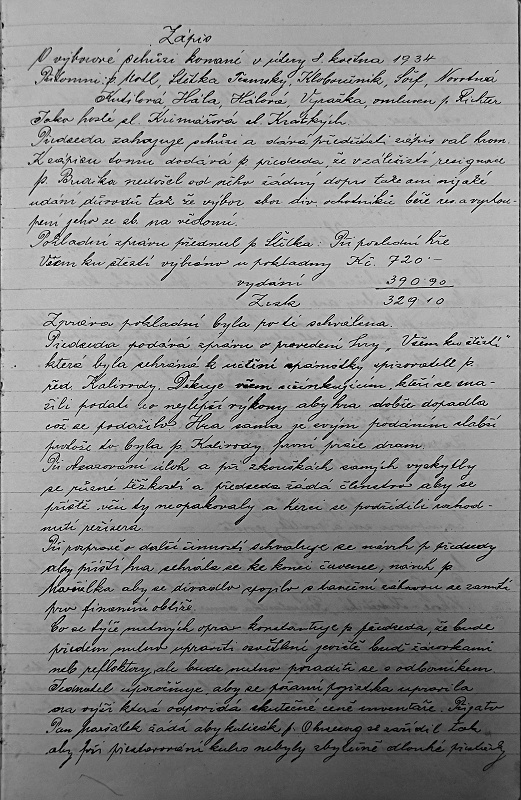 Zápis
O výborové schůzi konané v úterý 8. května 1934
Přítomni: p. Moll, Stička Tesmský, Klobouček, Šorf, Novotná
Kutilová Hála, Hálová, Vyrážka omluven p. Richter
Jako hosté sl. Krimářová sl. Kratkých
Předseda zahajuje schůzi a dává předčísti zápis val. hrom.
K zápisu tomu dodává p předseda, že v záležitosti resignace
p. Brudíka nedošel od něho žádný dopis také ani nijaké
udání důvodů tak že výbor sboru div. ochotníků béře res. a vystou-
pení jeho ze sb. na vědomí.
Pokladní zprávu přednesl p Stička: Při poslední hře
Všem ku štěstí vybráno u pokladny Kč. 720 · –
vydání 390·90
Zisk 329·10
Zpráva pokladní byla poté schválena.
Předseda podává zprávu o provedení hry „Všem ku štěstí"
která byla sehrána k uctění památky spisovatele p
řed. Kalivody. Děkuje všem účinkujícím, kteří se sna-
žili podati co nejlepší výkony aby hra dobře dopadla
což se podařilo. Hra sama je svým podáním slabší
protože to byla p. Kalivody první práce dram.
Při obsazování úloh a při zkouškách samých vyskytly
se různé těžkosti a předseda žádá členstvo aby se
příště věci ty neopakovaly a herci se podřídili rozhod-
nutí režiséra.
Při rozpravě o další činnosti schvaluje se návrh p předsedy
aby příští hra sehrála se ke konci července, návrh p
Maršálka aby se divadlo spojilo s taneční zábavou se zamítá
pro finanční obtíže.
Co se týče nutných oprav konstatuje p předseda, že bude
předem nutno upraviti osvětlení jeviště buď žárovkami
neb reflektory, ale bude nutno poraditi se s odborníkem.
Jednatel upozorňuje, aby se požární pojistka upravila
na výši která odpovídá skutečné ceně inventáře. Přijato
Pan Maršálek žádá aby kulisák p. Ohnesorg se zařídil tak
aby při přestavování kulis nebyly zbytečně dlouhé přestávky